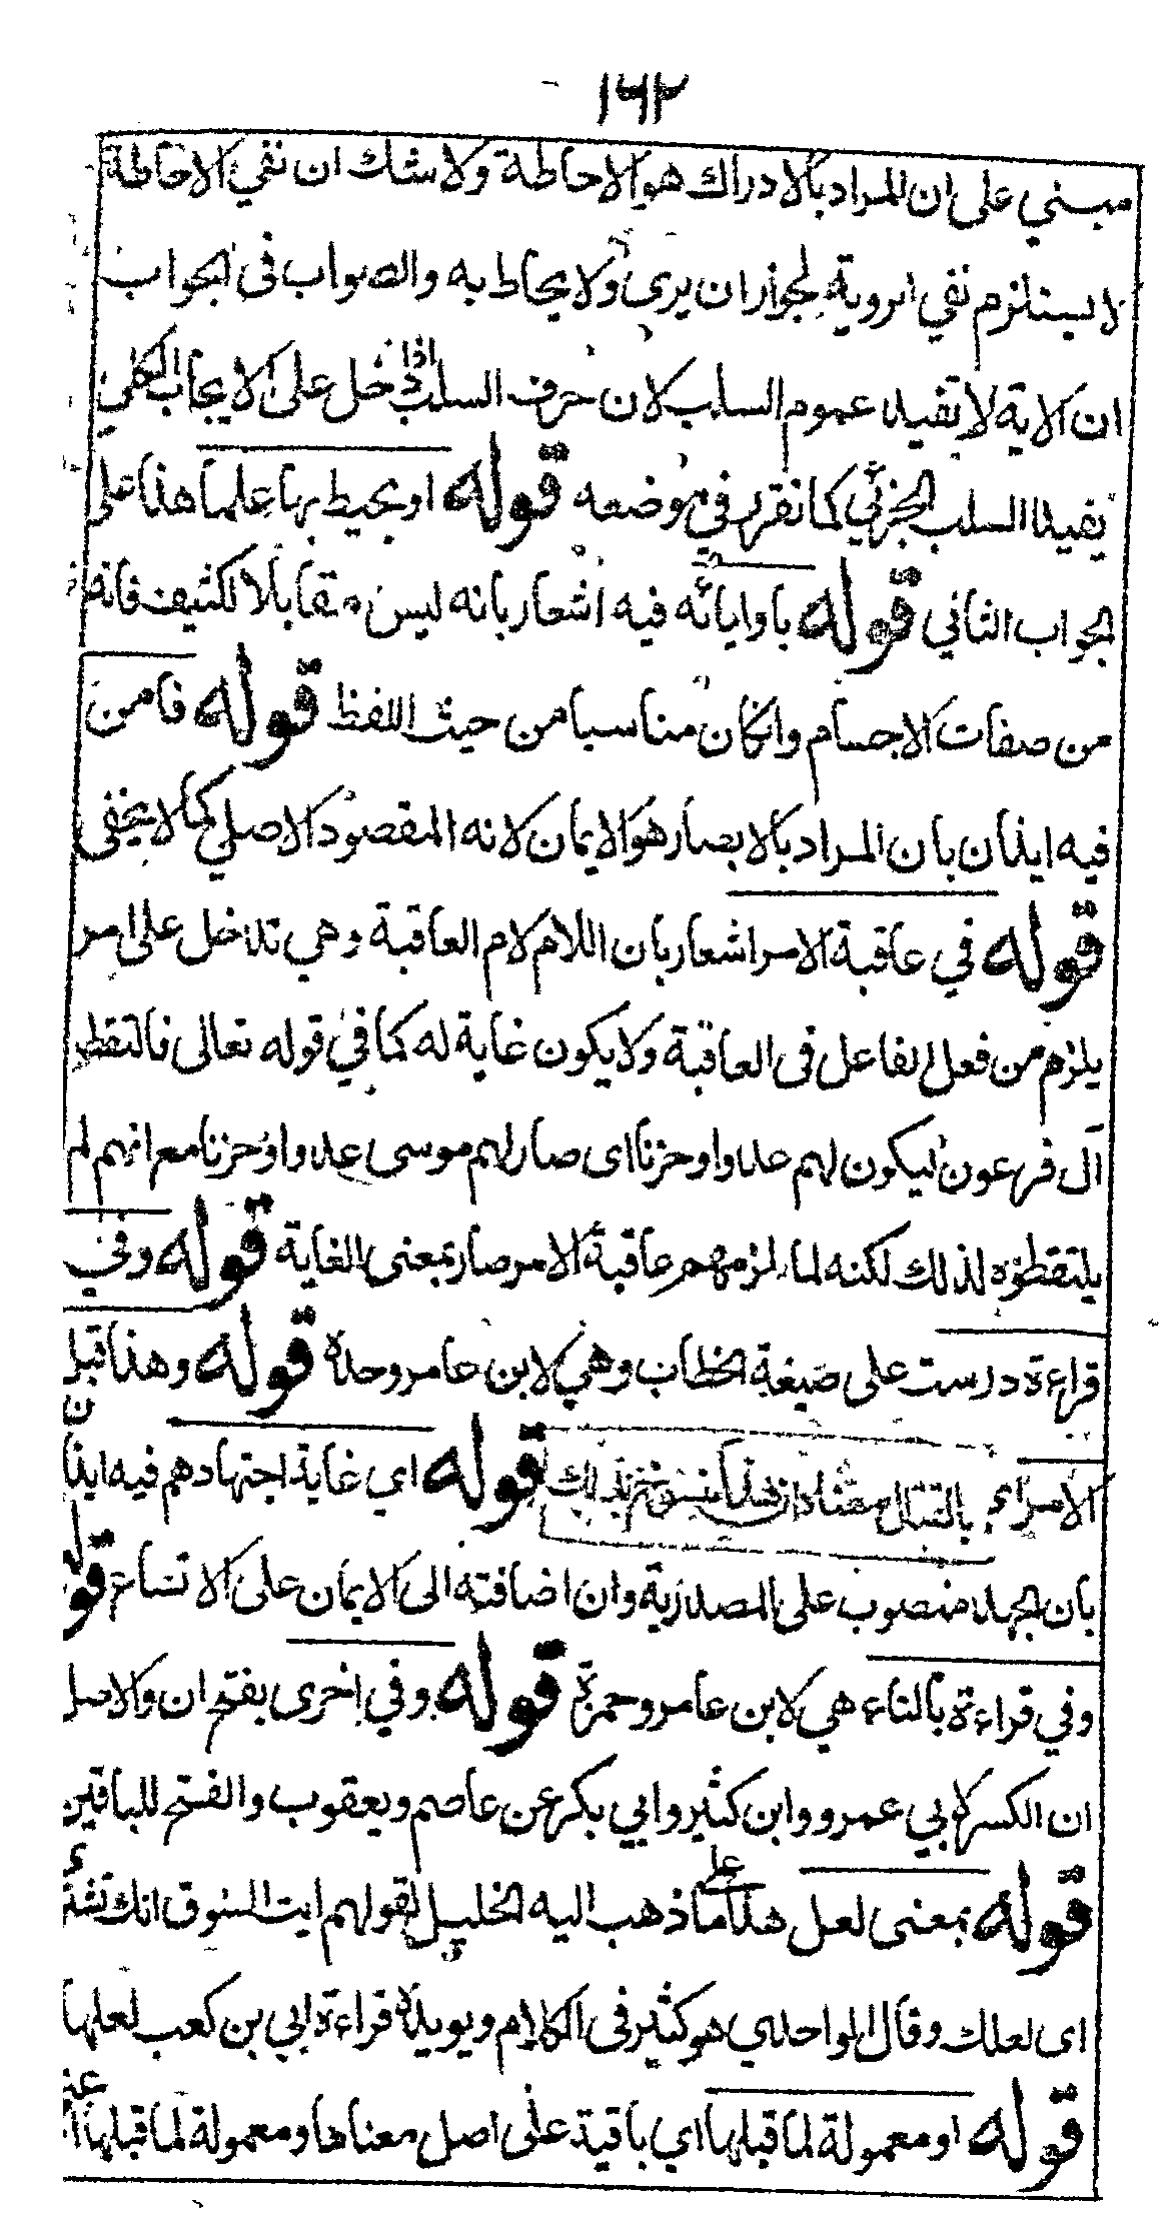 ١٦٢
مبني على ان المراد بالادراك هو الاحاطة ولا شك ان نفي الاحاطة
لا يستلزم نفي الروية لجواز ان يرى ولا يحاط به والصواب فى الجواب
ان الاية لا تفيد عموم السلب لان حرف السلب اذا دخل على الايجاب الكلي
يفيد السلب الجزئي كما تقرر في موضعه قوله او يحيط بها علما هذا على
الجواب الثاني قوله باوليائه فيه اشعار بانه ليس مقابلا لكثيف فانه
من صفات الاجسام وان كان مناسبا من حيث اللفظ قوله فامن
فيه ايذان بان المراد بالابصار هو الايمان لانه المقصود الاصلي كما لا يخفى
قوله في عاقبة الامر اشعار بان اللام لام العاقبة وهي تدخل على امر
يلزم من فعل الفاعل فى العاقبة ولا يكون غاية له كما في قوله تعالى فالتقطه
آل فرعون ليكون لهم عدوا وحزنا اى صار لهم موسى عدوا وحزنا مع انهم لم
يلتقطوه لذلك لكنه لما لزمهم عاقبة الامر صار بمعنى الغاية قوله وفي
قراءة درست على صيغة الخطاب وهي لابن عامر وحده قوله وهذا قبل
الامر بالقتال قوله اي غاية اجتهادهم فيه ايذان
بان الجهد منصوب على المصدرية وان اضافته الى الايمان على الاتساع قوله
وفي قراءة بالتاء هي لابن عامر وحمزة قوله وفي اخرى بفتح ان والاصل
ان الكسر لابي عمرو وابن كثير وابي بكر عن عاصم ويعقوب والفتح للباقين
قوله بمعنى لعل هذا على ما ذهب اليه الخليل لقولهم ايت السوق انك تشتر
اى لعلك وقال الواحدي هو كثير فى الكلام ويويده قراءة ابي بن كعب لعلها
قوله او معمولة لما قبلها اي باقية على اصل معناها ومعمولة لما قبلها